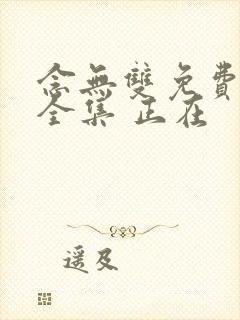 念無雙免費
全集 正在
遥及